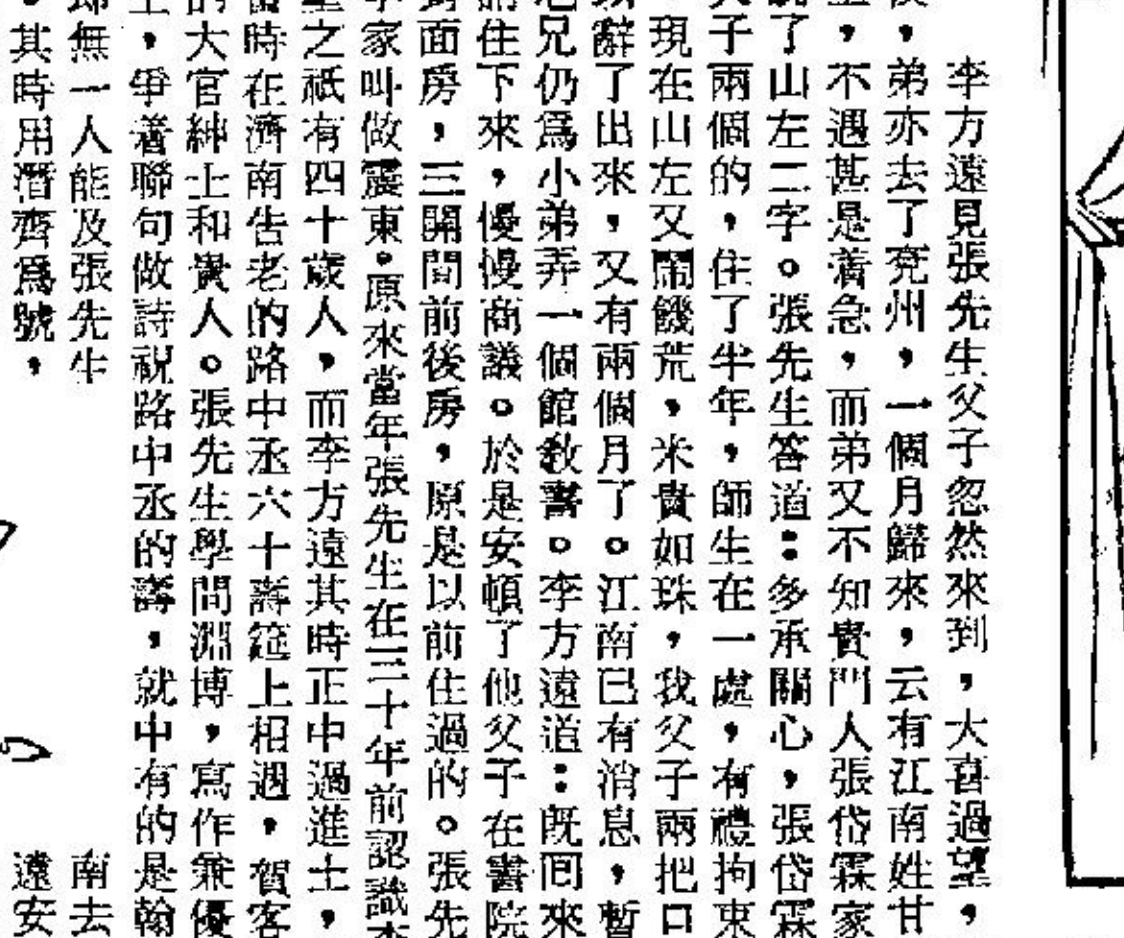 李方遠見張先生父子忽然來到,大喜過望,
,弟亦去了兗州,一個月歸來,云有江南姓甘
,不遇甚是着急,而弟又不知貴門人張岱霖家
了山左二字。張先生答道:多承關心,張岱霖
子兩個的,住了半年,師生在一處,有禮拘束
現在山左又鬧饑荒,米貴如珠,我父子兩把口
辭了出來,又有兩個月了。江南已有消息,暫
兄仍爲小弟弄一個館教書。李方遠道:既回來
住下來,慢慢商議。於是安頓了他父子在書院
面房,三開間前後房,原是以前住過的。張先
家叫做震東。原來當年張先生在三十年前認識
之祇有四十歲人,而李方遠其時正中過進士,
時在濟南告老的路中丞六十壽筵上相遇,賀客
大官紳士和貴人。張先生學問淵博,寫作兼優
,爭着聯句做詩祝路中丞的壽,就中有的是翰
無一人能及張先生 南去
其時用潛齊爲號, 遠安